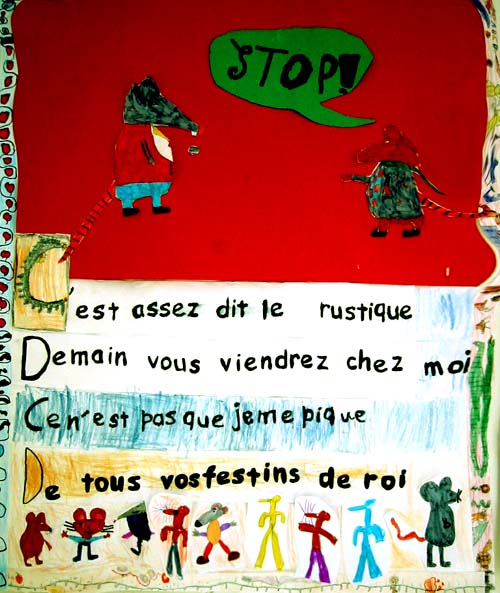 STOP!
C'est assez dit le rustique
Demain vous viendrez chez moi
Ce n'est pas que je me pique
De tous vos festins de roi